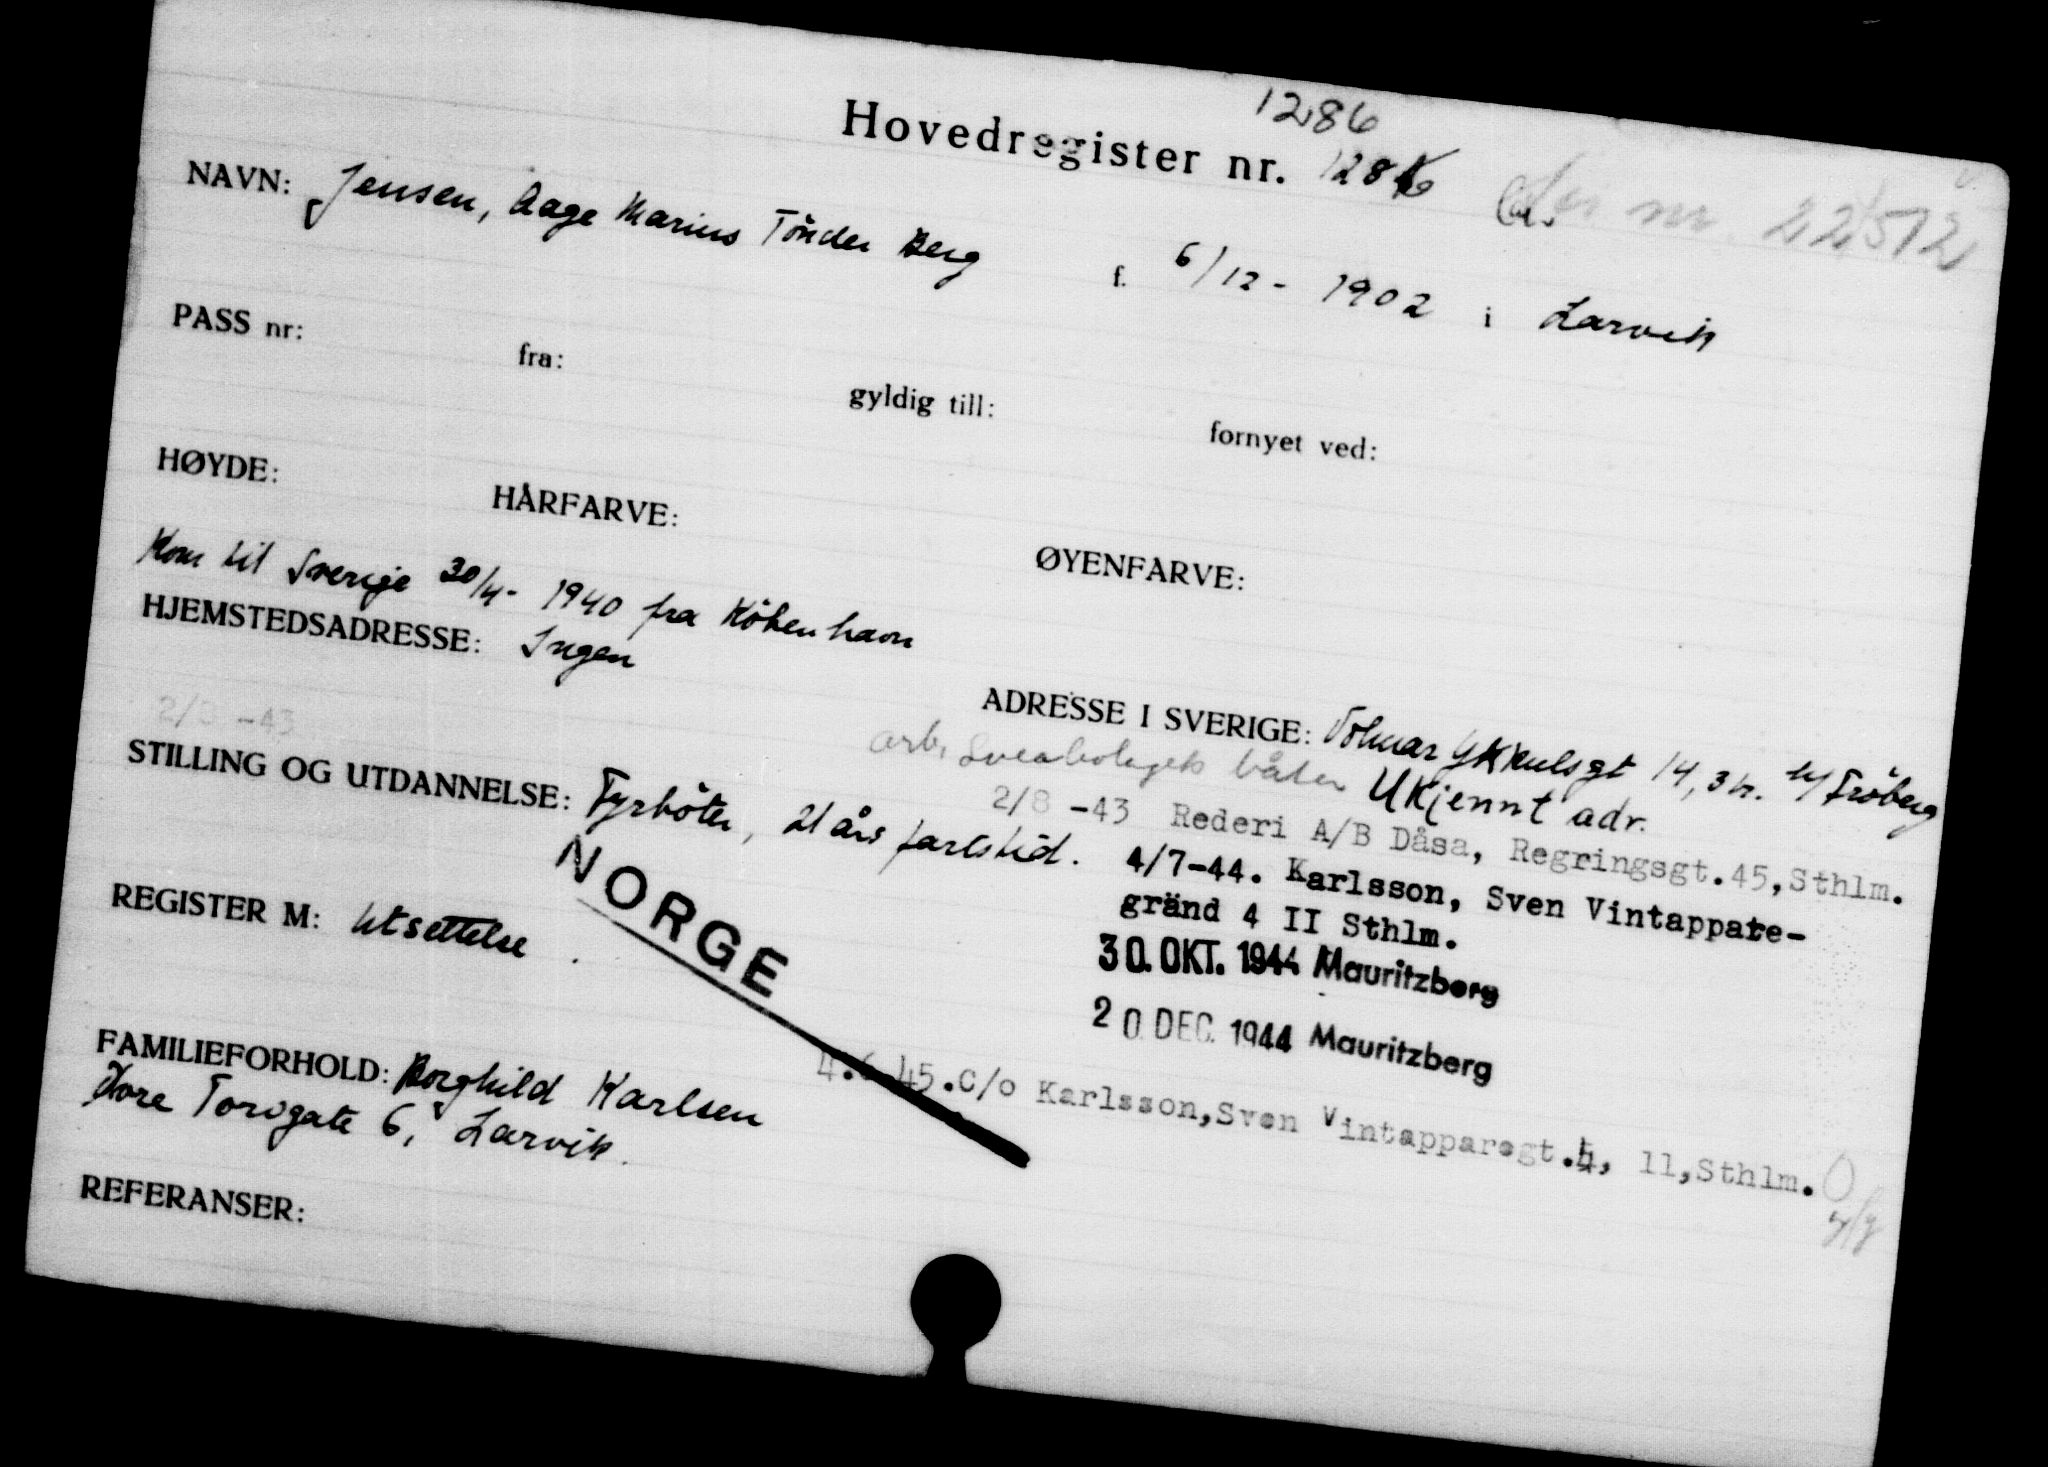 1286
Hovedregister nr. 1286
nr. 22572
NAVN: Jensen, Aage Marius Tönder Berg f. 6/12 - 1902 i Larvik
PASS nr: fra: gyldig till: fornyet ved:
HØYDE: HÅRFARVE: ØYENFARVE:
Kom til Sverige 30/4 - 1940 fra Köbenhavn
HJEMSTEDSADRESSE: Ingen
ADRESSE I SVERIGE: 14, 3 tr. Fröberg
arb. Sveabolagets båten Ukjennt adr.
2/8 -43
STILLING OG UTDANNELSE: Fyrböter, 21 års fartstid.
2/8 -43 Rederi A/B Dåsa, Regringsgt.45, Sthlm.
4/7-44. Karlsson, Sven Vintappare-
gränd 4 II Sthlm.
NORGE
REGISTER M: Utsettelse.
30. OKT. 1944 Mauritzberg
20 DEC. 1944 Mauritzberg
FAMILIEFORHOLD: Borghild Karlsen
Torvgate 6, Larvik.
4.6.45. C/o Karlsson, Sven Vintapparegt.4, 11, Sthlm.
REFERANSER: